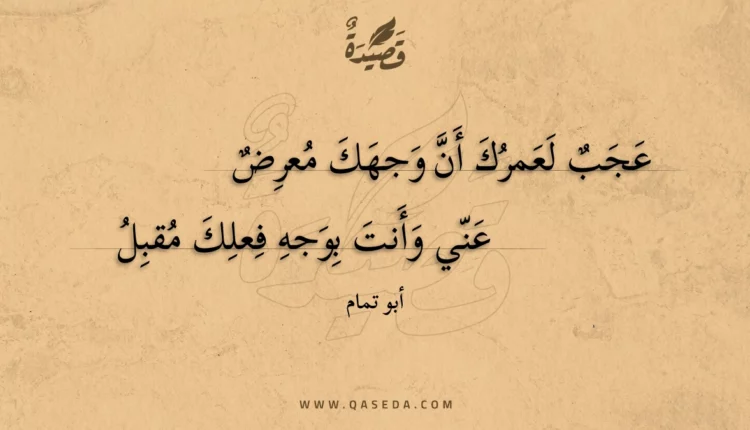 قَصِيدَةٌ
عَجَبٌ لَعَمرُكَ أَنَّ وَجهَكَ مُعرِضٌ
عَنّي وَأَنتَ بِوَجهِ فِعلِكَ مُقبِلُ
أبو تمام
WWW.QASEDA.COM